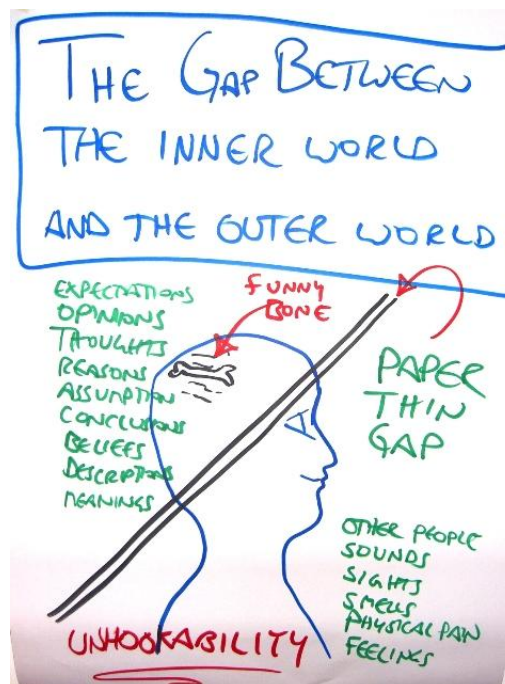 THE GAP BETWEEN
THE INNER WORLD
AND THE OUTER WORLD
EXPECTATIONS
OPINIONS
THOUGHTS
REASONS
ASSUMPTION
CONCLUSIONS
BELIEFS
DESCRIPTIONS
MEANINGS
FUNNY
BONE
PAPER
THIN
GAP
OTHER PEOPLE
SOUNDS
SIGHTS
SMELLS
PHYSICAL PAIN
FEELINGS
UNHOOKABILITY